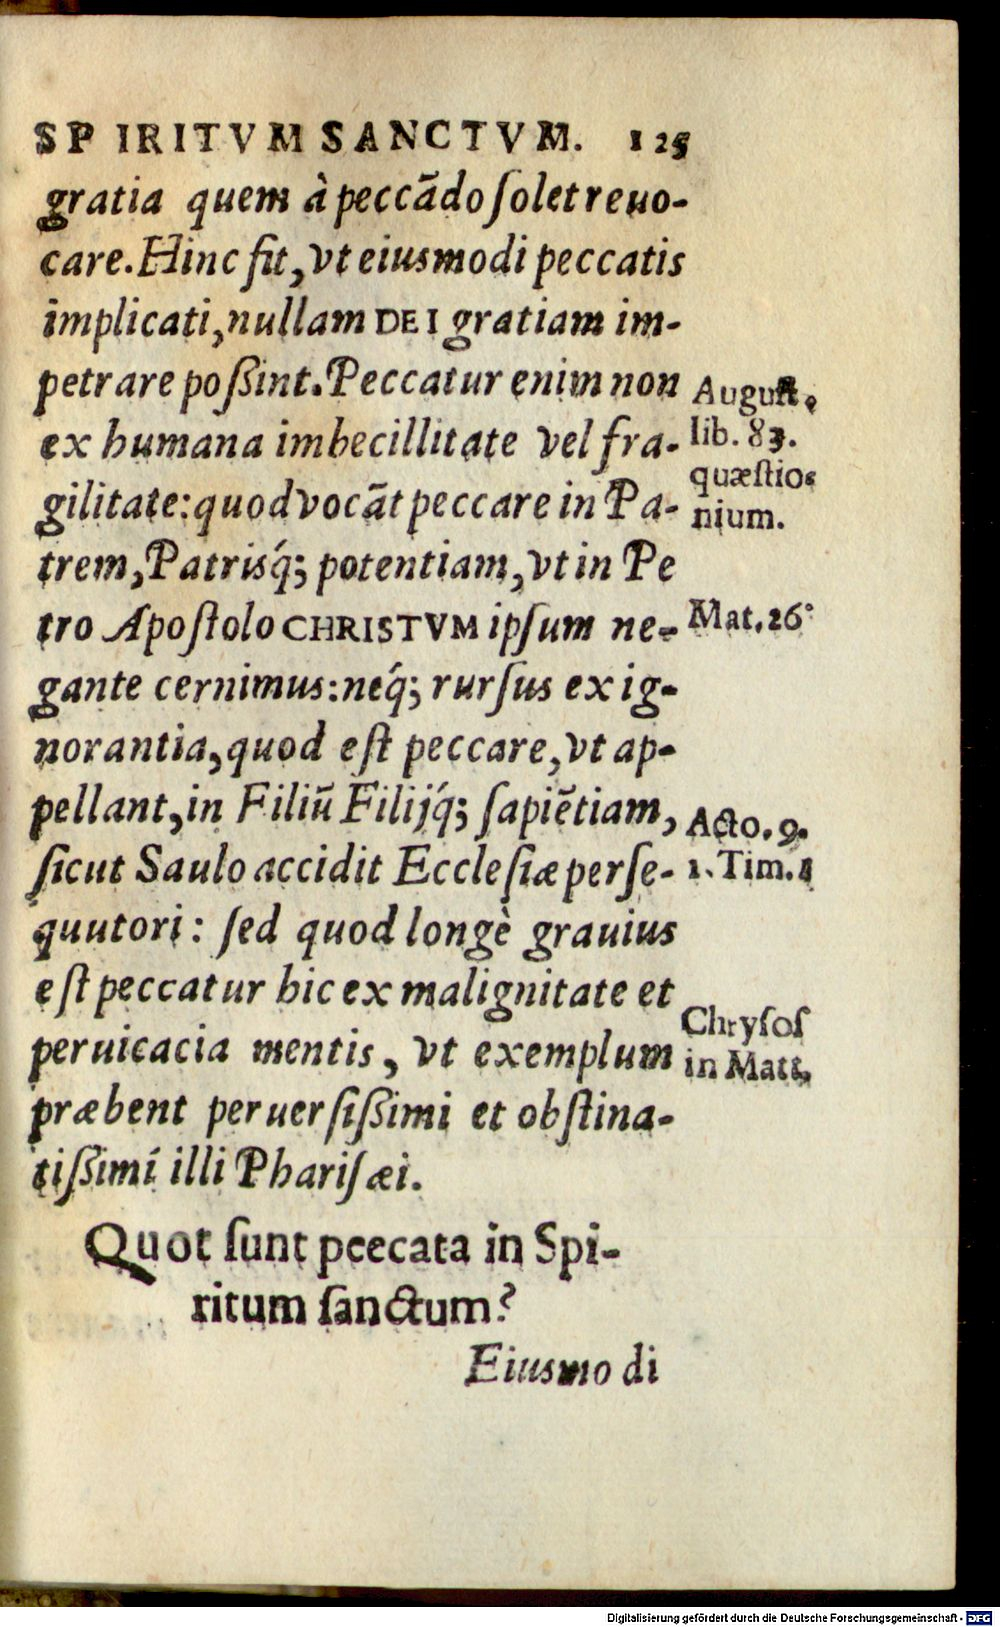 SPIRITVM SANCTVM. 125
gratia quem à peccãdo ſolet reuo-
care. Hinc fit, vt eiusmodi peccatis
implicati, nullam DEI gratiam im-
petrare poßint. Peccatur enim non
ex humana imbecillitate vel fra-
gilitate: quod vocãt peccare in Pa-
trem, Patrisq́; potentiam, vt in Pe
tro Apoſtolo CHRISTVM ipſum ne-
gante cernimus: neq́; rurſus ex ig-
norantia, quod eſt peccare, vt ap-
pellant, in Filiũ Filijq́; ſapiẽtiam,
ſicut Saulo accidit Eccleſiæ perſe-
quutori: ſed quod longè grauius
eſt peccatur hic ex malignitate et
peruicacia mentis, vt exemplum
præbent peruerſißimi et obſtina-
tißimi illi Phariſæi.
Auguſt.
lib. 83.
quæſtio-
nium.
Mat. 26.
Acto. 9.
1. Tim. 1
Chryſoſ
in Matt.
Quot ſunt pcecata in Spi-
ritum ſanctum?
Eiusmodi
Digitalisierung gefördert durch die Deutsche Forschungsgemeinschaft - DFG